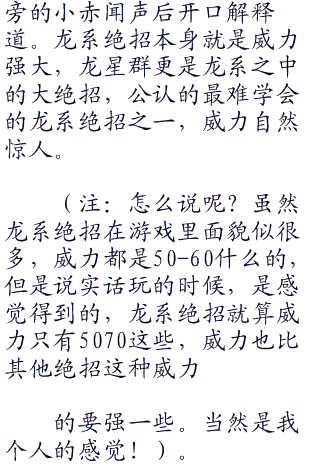 旁的小赤闻声后开口解释
道。龙系绝招本身就是威力
强大，龙星群更是龙系之中
的大绝招，公认的最难学会
的龙系绝招之一，威力自然
惊人。
（注：怎么说呢？虽然
龙系绝招在游戏里面貌似很
多，威力都是50-60什么的，
但是说实话玩的时候，是感
觉得到的，龙系绝招就算威
力只有5070这些，威力也比
其他绝招这种威力
的要强一些。当然是我
个人的感觉！）。